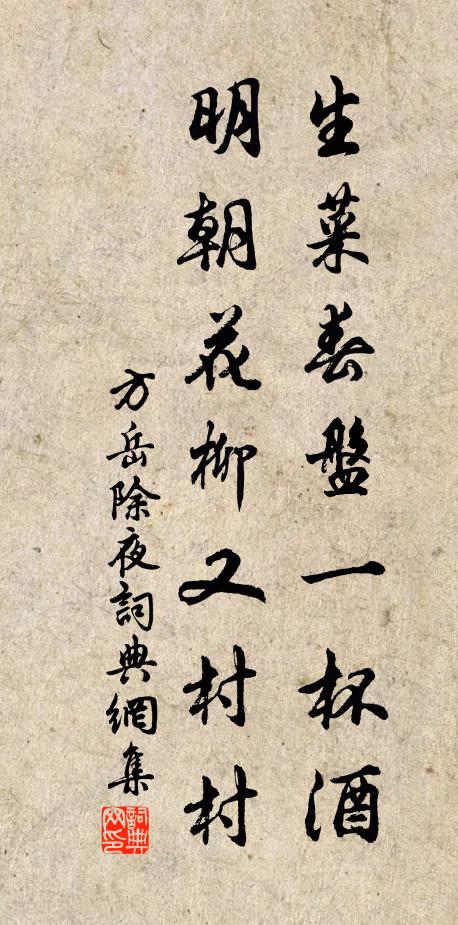 生菜春盤一杯酒
明朝花柳又村村
方岳除夜詞典網集
詞典網印